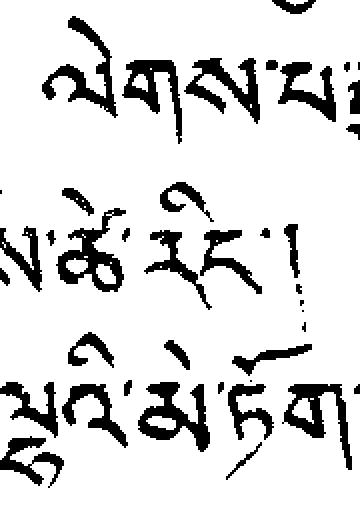 ལེགས་པ
ཚེ་རིང་།
ལྷའི་མེ་ཏོག